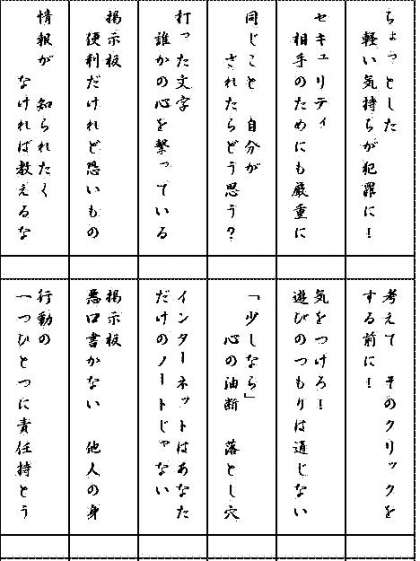 ちょっとした
軽い気持ちが犯罪に!
セキュリティ
相手のためにも厳重に
同じこと 自分が
されたらどう思う?
打った文字
誰かの心を撃っている
掲示板
便利だけれど恐いもの
情報が 知られたく
なければ教えるな
考えて そのクリックを
する前に!
気をつけろ!
遊びのつもりは通じない
「少しなら」
心の油断 落とし穴
インターネットはあなた
だけのノートじゃない
掲示板
悪口書かない 他人の身
行動の
一つひとつに責任持とう